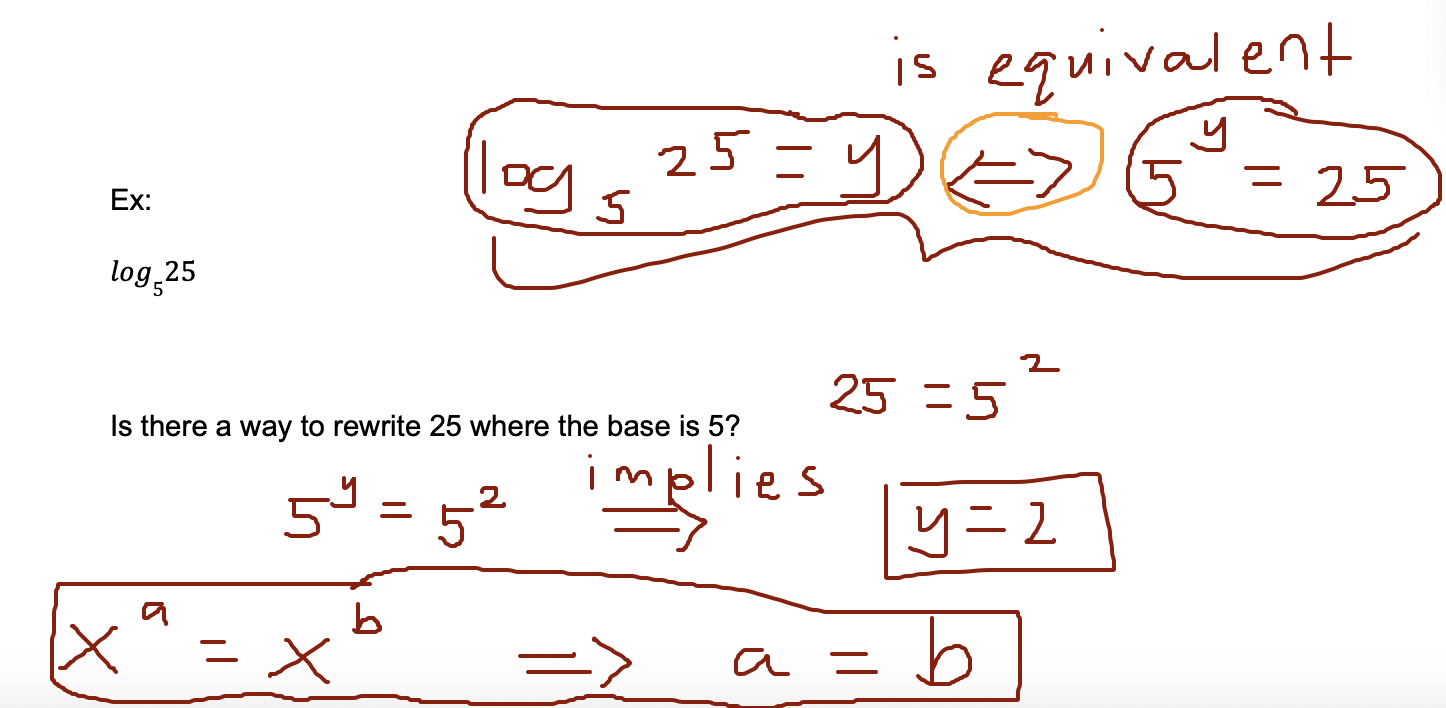 is equivalent
log₅ 25 = y <=> 5ʸ = 25
Ex:
log₅25
25 = 5²
Is there a way to rewrite 25 where the base is 5?
implies
5ʸ = 5² => y = 2
xᵃ = xᵇ => a = b